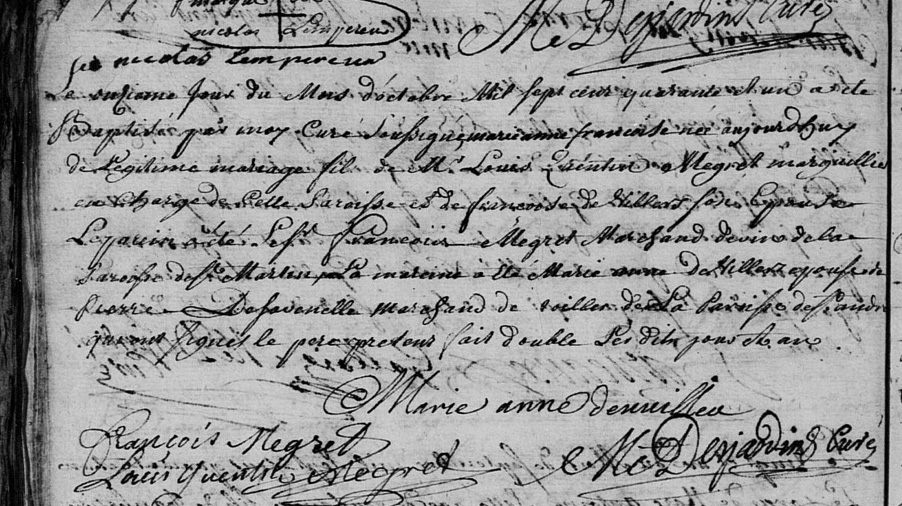 marque
nicolas Lempereur
M C Desjardins Curé
nicolas Lempereur
Le onzieme Jour du Mois d'octobre Mil sept cent quarante et un a eté
Baptisé par moy Curé Soussigné marie anne francoise née aujourd'huy
de Legitime mariage fil de Mr Louis Quentin Megret marguillier
en Charge de Cette Paroisse et de francoise de Villers son Epouse
Le parin a été Le Sr François Megret Marchand de vin de la
Paroisse de St Martin, La mareine a été Marie anne de Villers epouse de
Pierre marchand de toilles de La Paroisse de St andré
qui ont Signés le pere present fait double Les dits jour et an
Marie anne devillers
François Megret
Louis Quentin Megret
M C Desjardins Curé